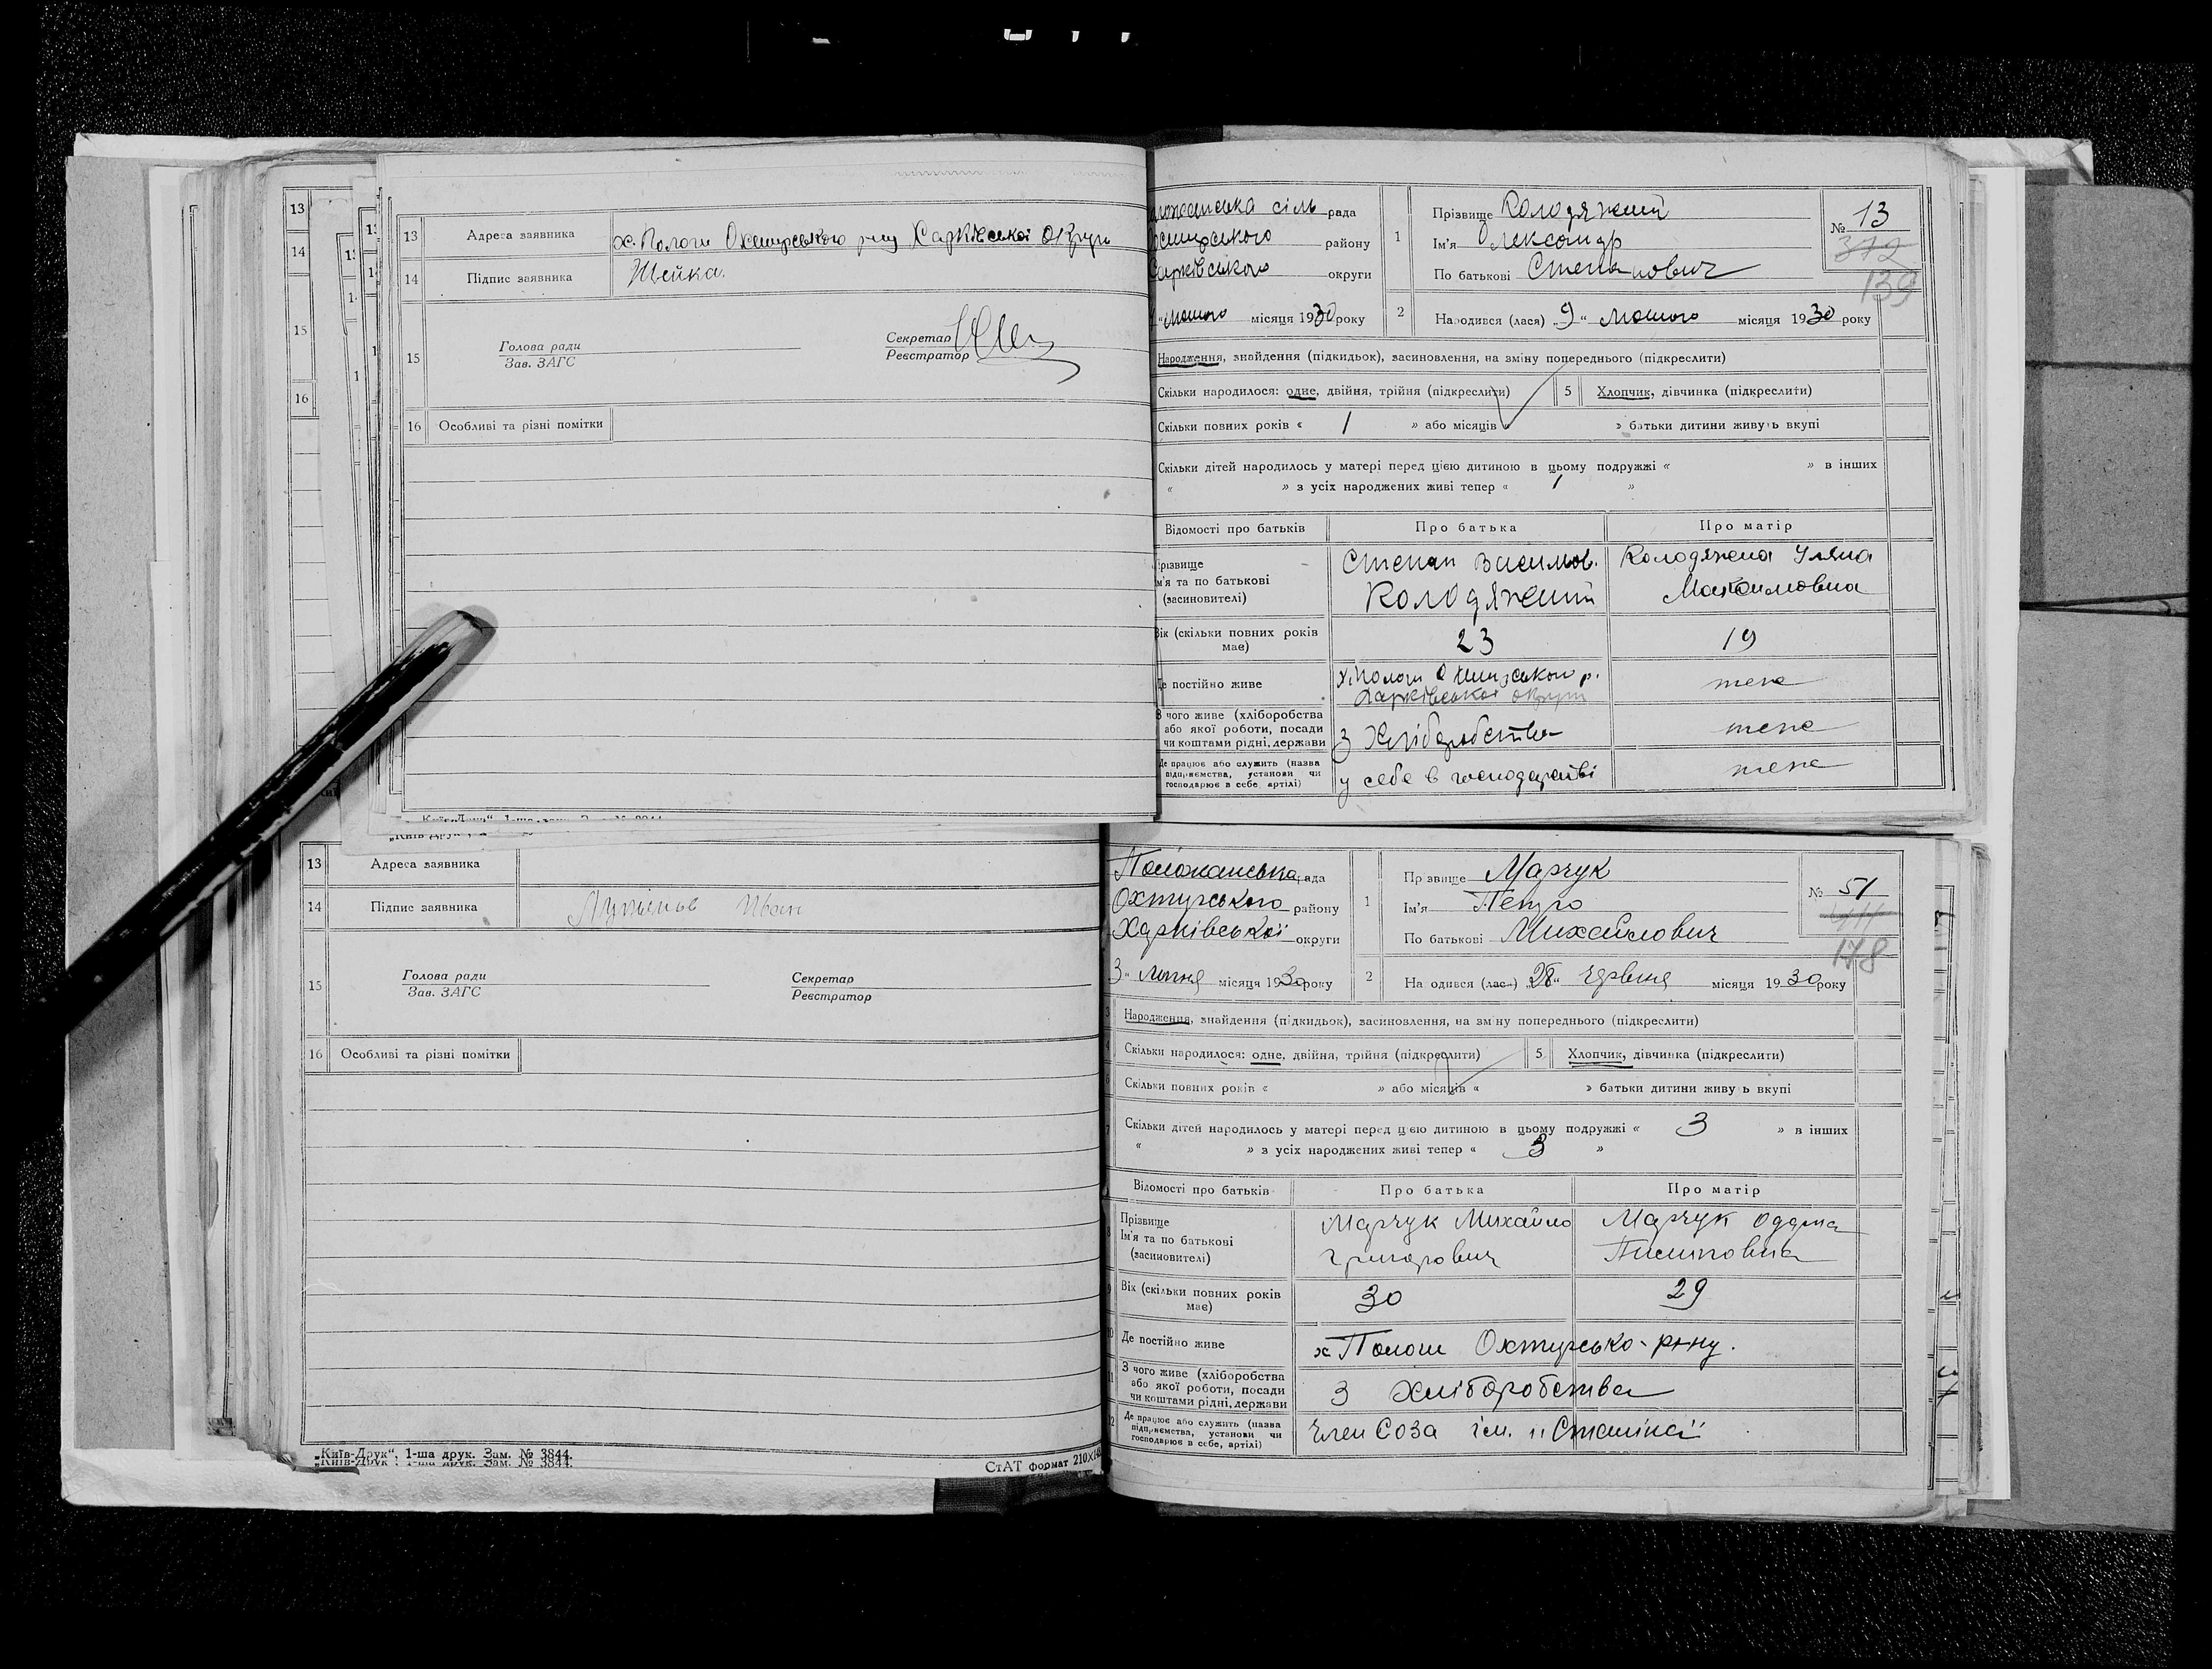 13
14
15
16
13 Адреса заявника х. Пологи Охтирського р-ну Харківської округи
14 Підпис заявника Шейка.
15 Голова ради
Зав. ЗАГС
Секретар
Реєстратор
16 Особливі та різні помітки
сіль рада
району
Харківського округи
лютого місяця 1930 року
1 Прізвище Колодяжний
Ім'я Олександр
По батькові Степанович
№ 13
372
139
2 Народився (лася) „9“ лютого місяця 1930 року
Народження, знайдення (підкидьок), засиновлення, на зміну попереднього (підкреслити)
Скільки народилося: одне, двійня, трійня (підкреслити) 5 Хлопчик, дівчинка (підкреслити)
Скільки повних років « 1 » або місяців « » батьки дитини живуть вкупі
Скільки дітей народилось у матері перед цією дитиною в цьому подружжі « » в інших
« » з усіх народжених живі тепер « 1 »
Відомості про батьків Про батька Про матір
Прізвище
Ім'я та по батькові
(засиновителі)
Степан Васильов.
Колодяжний
Колодяжна Уляна
Максимовна
Вік (скільки повних років
має)
23 19
Де постійно живе х. Пологи Охтирського р.
Харківської округи
теж
З чого живе (хліборобства
або якої роботи, посади
чи коштами рідні, держави
З Хліборобства теж
Де працює або служить (назва
підприємства, установи чи
господарює в себе, артілі)
у себе в господарстві теж
„Київ-Друк“, 1-ша друк. Зам. № 3844
13 Адреса заявника
14 Підпис заявника Іван
15 Голова ради
Зав. ЗАГС
Секретар
Реєстратор
16 Особливі та різні помітки
„Київ-Друк“, 1-ша друк. Зам. № 3844.
„Київ-Друк“, 1-ша друк. Зам. № 3844.
СтАТ формат 210×1
Положанська рада
Охтирського району
Харківської округи
3“ липня місяця 1930 року
1 Прізвище Марчук
Ім'я Петро
По батькові Михайлович
№ 51
178
2 Народився (лася) „28“ червня місяця 1930 року
3 Народження, знайдення (підкидьок), засиновлення, на зміну попереднього (підкреслити)
4 Скільки народилося: одне, двійня, трійня (підкреслити) 5 Хлопчик, дівчинка (підкреслити)
6 Скільки повних років « » або місяців « » батьки дитини живуть вкупі
7 Скільки дітей народилось у матері перед цією дитиною в цьому подружжі « 3 » в інших
« » з усіх народжених живі тепер « 3 »
Відомості про батьків Про батька Про матір
8 Прізвище
Ім'я та по батькові
(засиновителі)
Марчук Михайло
Григорович
Марчук
9 Вік (скільки повних років
має)
30 29
10 Де постійно живе х Пологи Охтирсько-р-ну.
11 З чого живе (хліборобства
або якої роботи, посади
чи коштами рідні, держави
З Хліборобства
12 Де працює або служить (назва
підприємства, установи чи
господарює в себе, артілі)
Член Соза ім. „Сталіна“